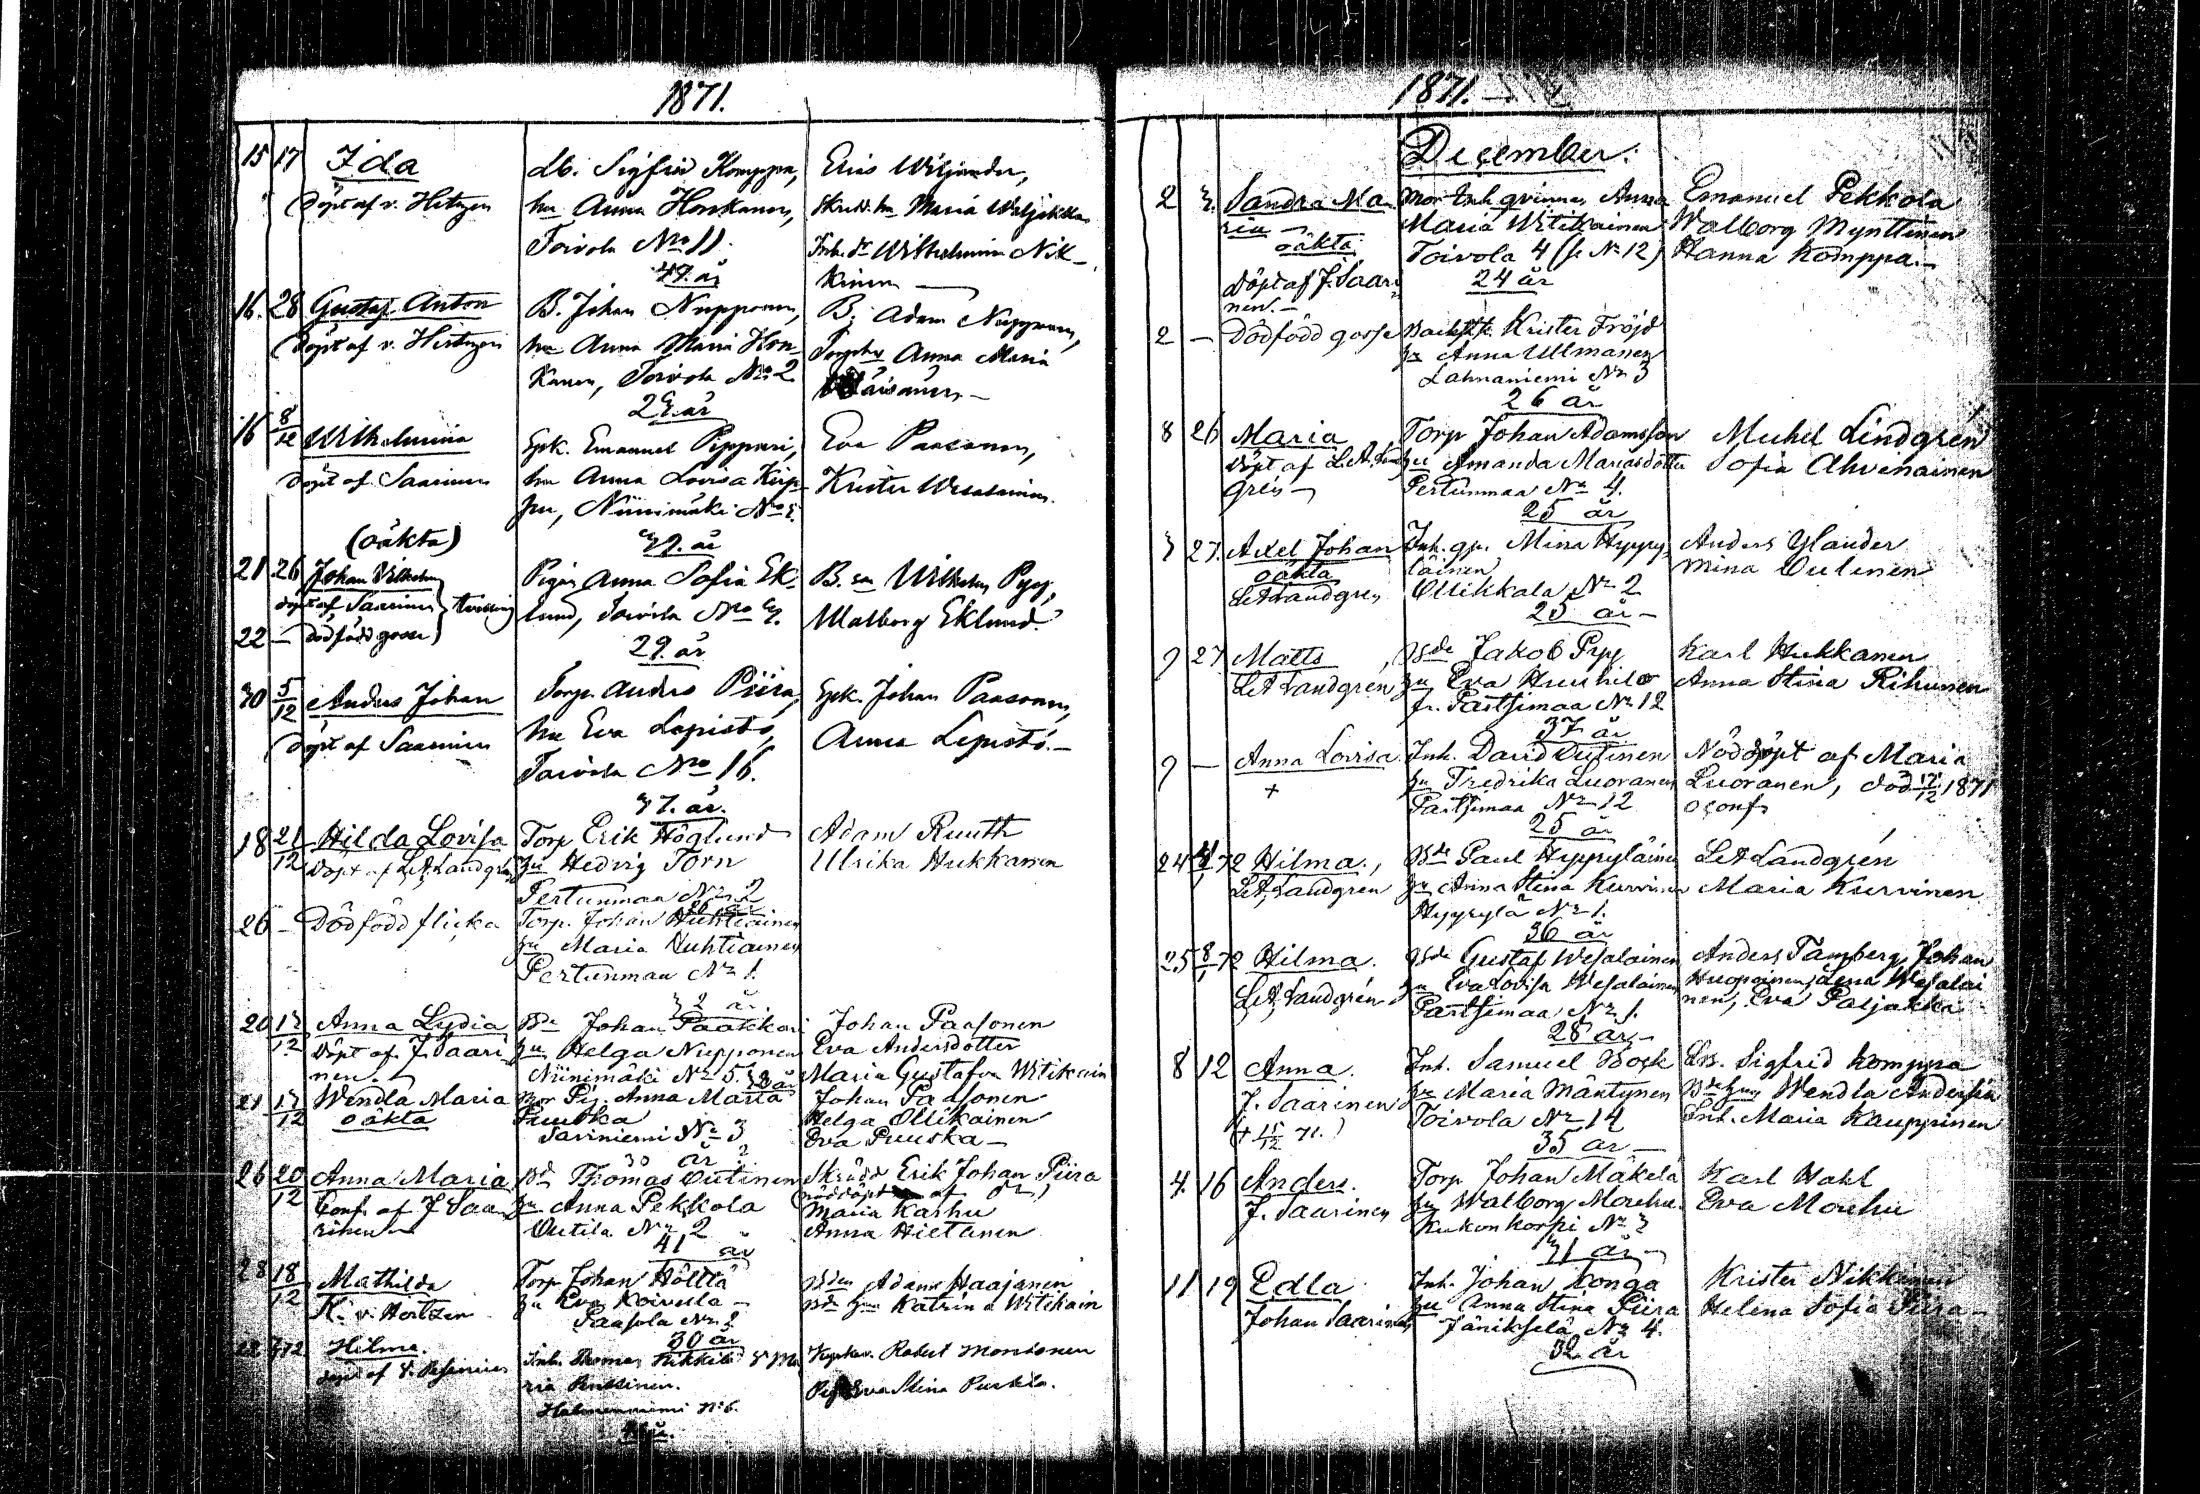 1871.
15 17 Ida
Döpt af v. Hertzen
db. Sigfrid Komppa,
hu Anna Honkanen,
Toivola No 11.
47. år
Elias Wiljander,
Maria
Inh. dr Wilhelmina Nik-
kinen
16. 28 Gustaf Anton
Döpt af v. Hertzen
B. Johan Nupponen,
hu Anna Maria Hon-
kanen, Toivola No 2
B. Adam Nupponen,
Anna Maria
Väisänen
16 8/12 Wilhelmina
Döpt af Saarinen
Emanuel Pippuri,
hu Anna Lovisa
Niinimäki No
Eva Paasonen,
Krister Wesalainen.
(oäkta)
21 26 Johan Wilhelm
döpt af Saarinen
22 — dödfödd gosse
Pigan Anna Sofia Ek-
lund, Toivola No
29. år
B. son Wilhelm Pyy,
Walborg Eklund.
30 5/12 Anders Johan
Döpt af Saarinen
Torp. Anders Piira
hu Eva Lepistö,
Toivola No 16.
37. år.
Johan Paasonen,
Anna Lepistö.—
18 21/12 Hilda Lovisa
Döpt af L.A. Landgrén
Torp Erik Höglund
hu Hedvig Torn
Pertunmaa No 2
Adam Ruuth
Ulrika Hukkanen
26 — Dödfödd flicka
Torp. Johan Huhtiainen
hu Maria Huhtiainen
Pertunmaa No 1.
32 år.
20 13/12 Anna Lydia
Döpt af J. Saari
nen.
Johan Paakkari
hu Helga Nupponen
Niinimäki No 5.
Johan Paasonen
Eva Andersdotter
Maria Gustafva Witikain
21 17/12 Wendla Maria
oäkta
Mor Pig. Anna Maria
Puuska
Sariniemi No 3
30 år
Johan Paasonen
Helga Ollikainen
Eva Puuska —
26 20/12 Anna Maria
Conf. af J Saa
rinen
Thomas Outinen
hu Anna Pekkola
Outila No 2
41 år
Skrädd Erik Johan Piira
nöddöpt af
Maria Karhu
Anna Hietanen
28 18/12 Mathilda
K. v. Hertzen
Torp Johan Hölttä
hu Eva Koivula
Paasola No 2
30 år
Adam Haajanen
Katrina Witikain
Hilma.
Thomas Pikkilä
ria Penttinen.
No 6.
Robert Montonen
Eva Stina Puskka.
1871.
December.
2 3. Sandra Ma
ria
oäkta
Döpt af J. Saari
nen.
Mor Inh qvinnan Anna
Maria Witikainen
Toivola 4 (fr No 12)
24 år
Emanuel Pekkola
Walborg Mynttinen
Hanna Komppa.—
2 — Dödfödd gosse
Krister Fröjd
hu Anna Ullmanen
Lahnaniemi No 3
26 år
8 26 Maria
Döpt af L.A. Land
grén
Torp Johan Adamsson
hu Amanda Mariasdotter
Pertunmaa No 4.
25 år
Michel Lindgrén
Sofia Ahvenainen
3 27. Axel Johan
oäkta
LA Landgren
Inh. qv. Mina Hyyry
läinen
Ollikkala No 2
25 år —
Anders Ylander
Mina Outinen
9 27 Matts
LA Landgren
Jakob Pyy
hu Eva Huuhilo
fr. Partsimaa No 12
37 år
Karl Hukkanen
Anna Stina Rihunen
9 — Anna Lovisa
+
Inh. David Outinen
hu Fredrika Luoranen
Partsimaa No 12
25 år
Nöddöpt af Maria
Luoranen, död 17/12 1871
oconf.
24 4/1 72 Hilma.
LA Landgren
Paul Hyyryläinen
hu Anna Stina Kurvinen
Hyyrylä No 1.
36 år
LA Landgrén
Maria Kurvinen
25 8/1 72 Hilma.
LA, Landgrén
Gustaf Wesalainen
hu Eva Lovisa Wesalainen
Partsimaa No 1.
28 år —
Anders Tamberg, Johan
Huopainen, Lena Wesalai
nen, Eva Paljakka
8 12 Anna.
J. Saarinen
+ 15/12 71.
Inh. Samuel Bock
hu Maria Mäntynen
Toivola No 14
35 år —
Sigfrid Komppa
Wendla Andersin
Inh. Maria Kauppinen
4. 16 Anders.
J. Saarinen
Torp Johan Mäkelä
hu Walborg Morehu
Kukonkorpi No 2
31 år
Karl Wahl
Eva Morehu
11 19 Edla
Johan Saarinen
Inh. Johan Konga
hu Anna Stina Piira
Jänikselä No 4.
32 år
Krister Nikkinen
Helena Sofia Piira —